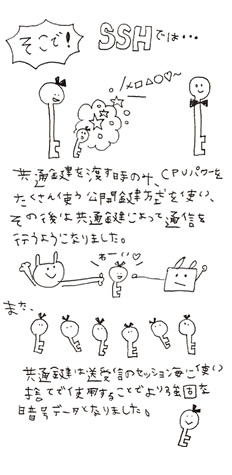 そこで!
SSHでは…
/メロ△○♡~
共通鍵を渡す時のみ、CPUパワーを
たくさん使う公開鍵方式を使い、
その後は共通鍵によって通信を
行うようになりました。
わーい♡
また、
共通鍵は送受信のセッション毎に使い
捨てで使用することでより強固な
暗号データとなりました。